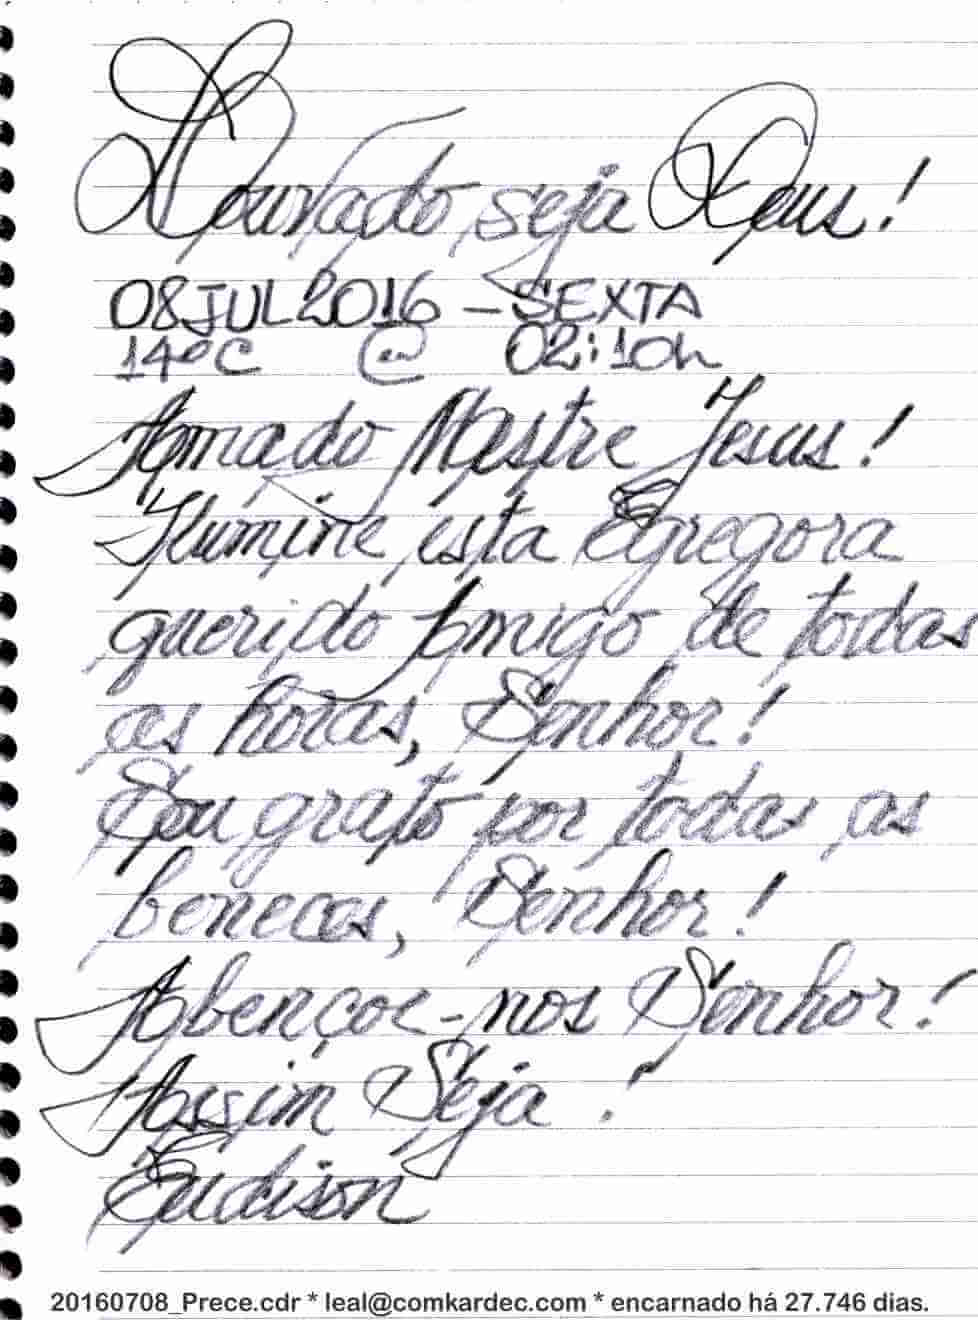 Louvado seja Deus!
08JUL2016 - SEXTA
14ºC @ 02:10h
Amado Mestre Jesus!
Ilumine esta Egregora
querido Amigo de todas
as horas, Senhor!
Sou grato por todas as
beneces, Senhor!
Abençoe-nos Senhor!
Assim Seja!
Eudison
20160708_Prece.cdr * leal@comkardec.com * encarnado há 27.746 dias.